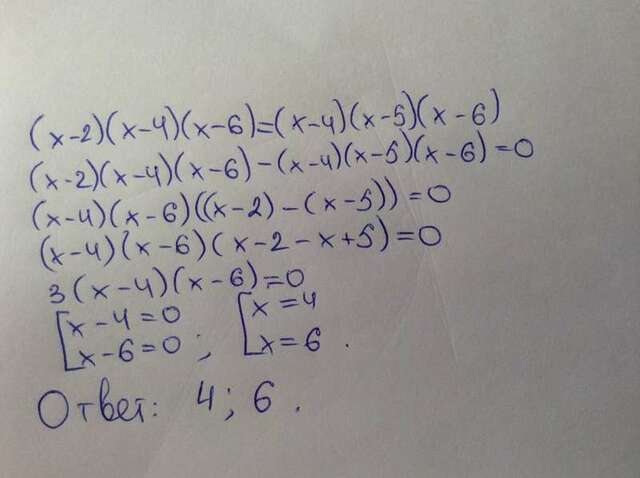 (x-2)(x-4)(x-6)=(x-4)(x-5)(x-6)
(x-2)(x-4)(x-6)-(x-4)(x-5)(x-6)=0
(x-4)(x-6)((x-2)-(x-5))=0
(x-4)(x-6)(x-2-x+5)=0
3(x-4)(x-6)=0
[x-4=0 [x=4
x-6=0; x=6.
Ответ: 4; 6.